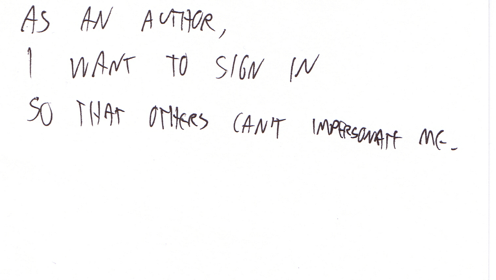 AS AN AUTHOR,
I WANT TO SIGN IN
SO THAT OTHERS CAN'T IMPERSONATE ME.